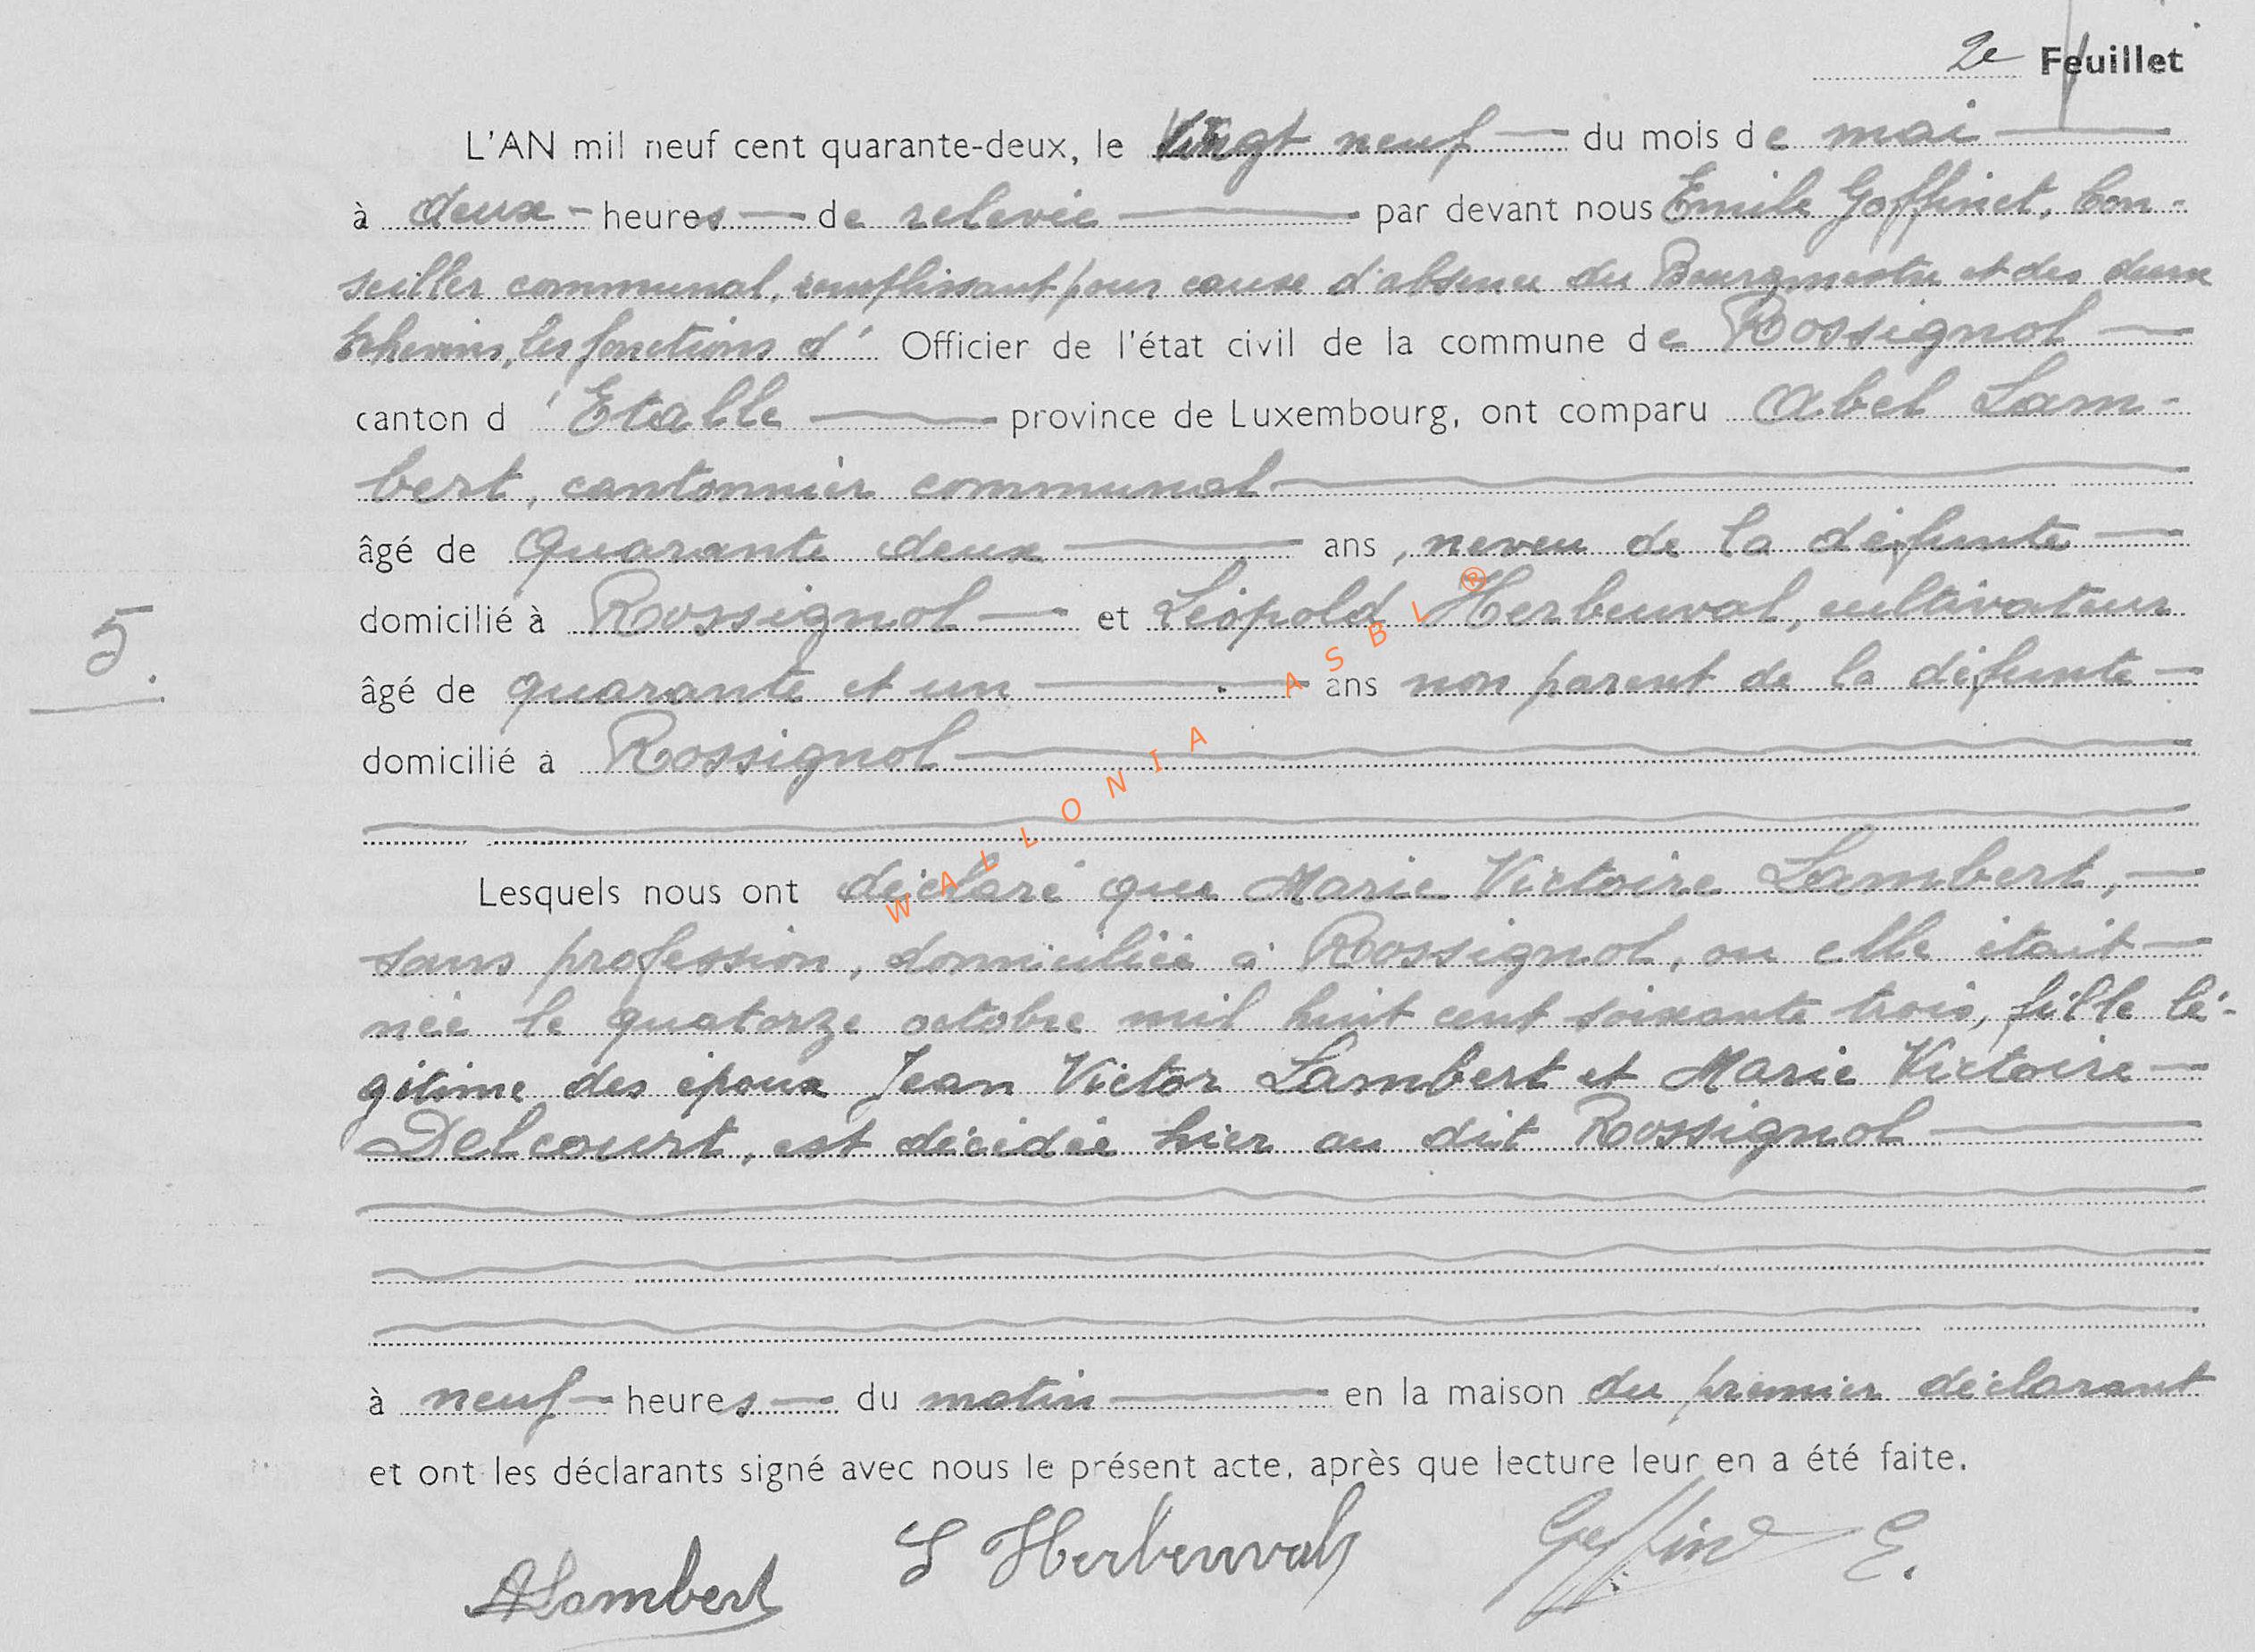 2e Feuillet
L'AN mil neuf cent quarante-deux, le vingt neuf du mois de mai
à deux heures de relevée par devant nous Emile Goffinet, Con-
seiller communal, remplissant pour cause d'absence du Bourgmestre et des deux
Echevins, les fonctions d' Officier de l'état civil de la commune de Rossignol
canton d'Etalle province de Luxembourg, ont comparu Abel Lam-
bert, cantonnier communal
âgé de quarante deux ans, neveu de la défunte
domicilié à Rossignol et Léopold Herbeuval, cultivateur
5.
âgé de quarante et un ans non parent de la défunte
domicilié à Rossignol
Lesquels nous ont déclaré que Marie Victoire Lambert,
sans profession, domiciliée à Rossignol, ou elle était
née le quatorze octobre mil huit cent soixante trois, fille lé-
gitime des époux Jean Victor Lambert et Marie Victoire
Delcourt, est décédée hier au dit Rossignol
à neuf heures du matin en la maison du premier déclarant
et ont les déclarants signé avec nous le présent acte, après que lecture leur en a été faite.
ALambert L Herbeuval Goffinet E.
WALLONIA ASBL ®